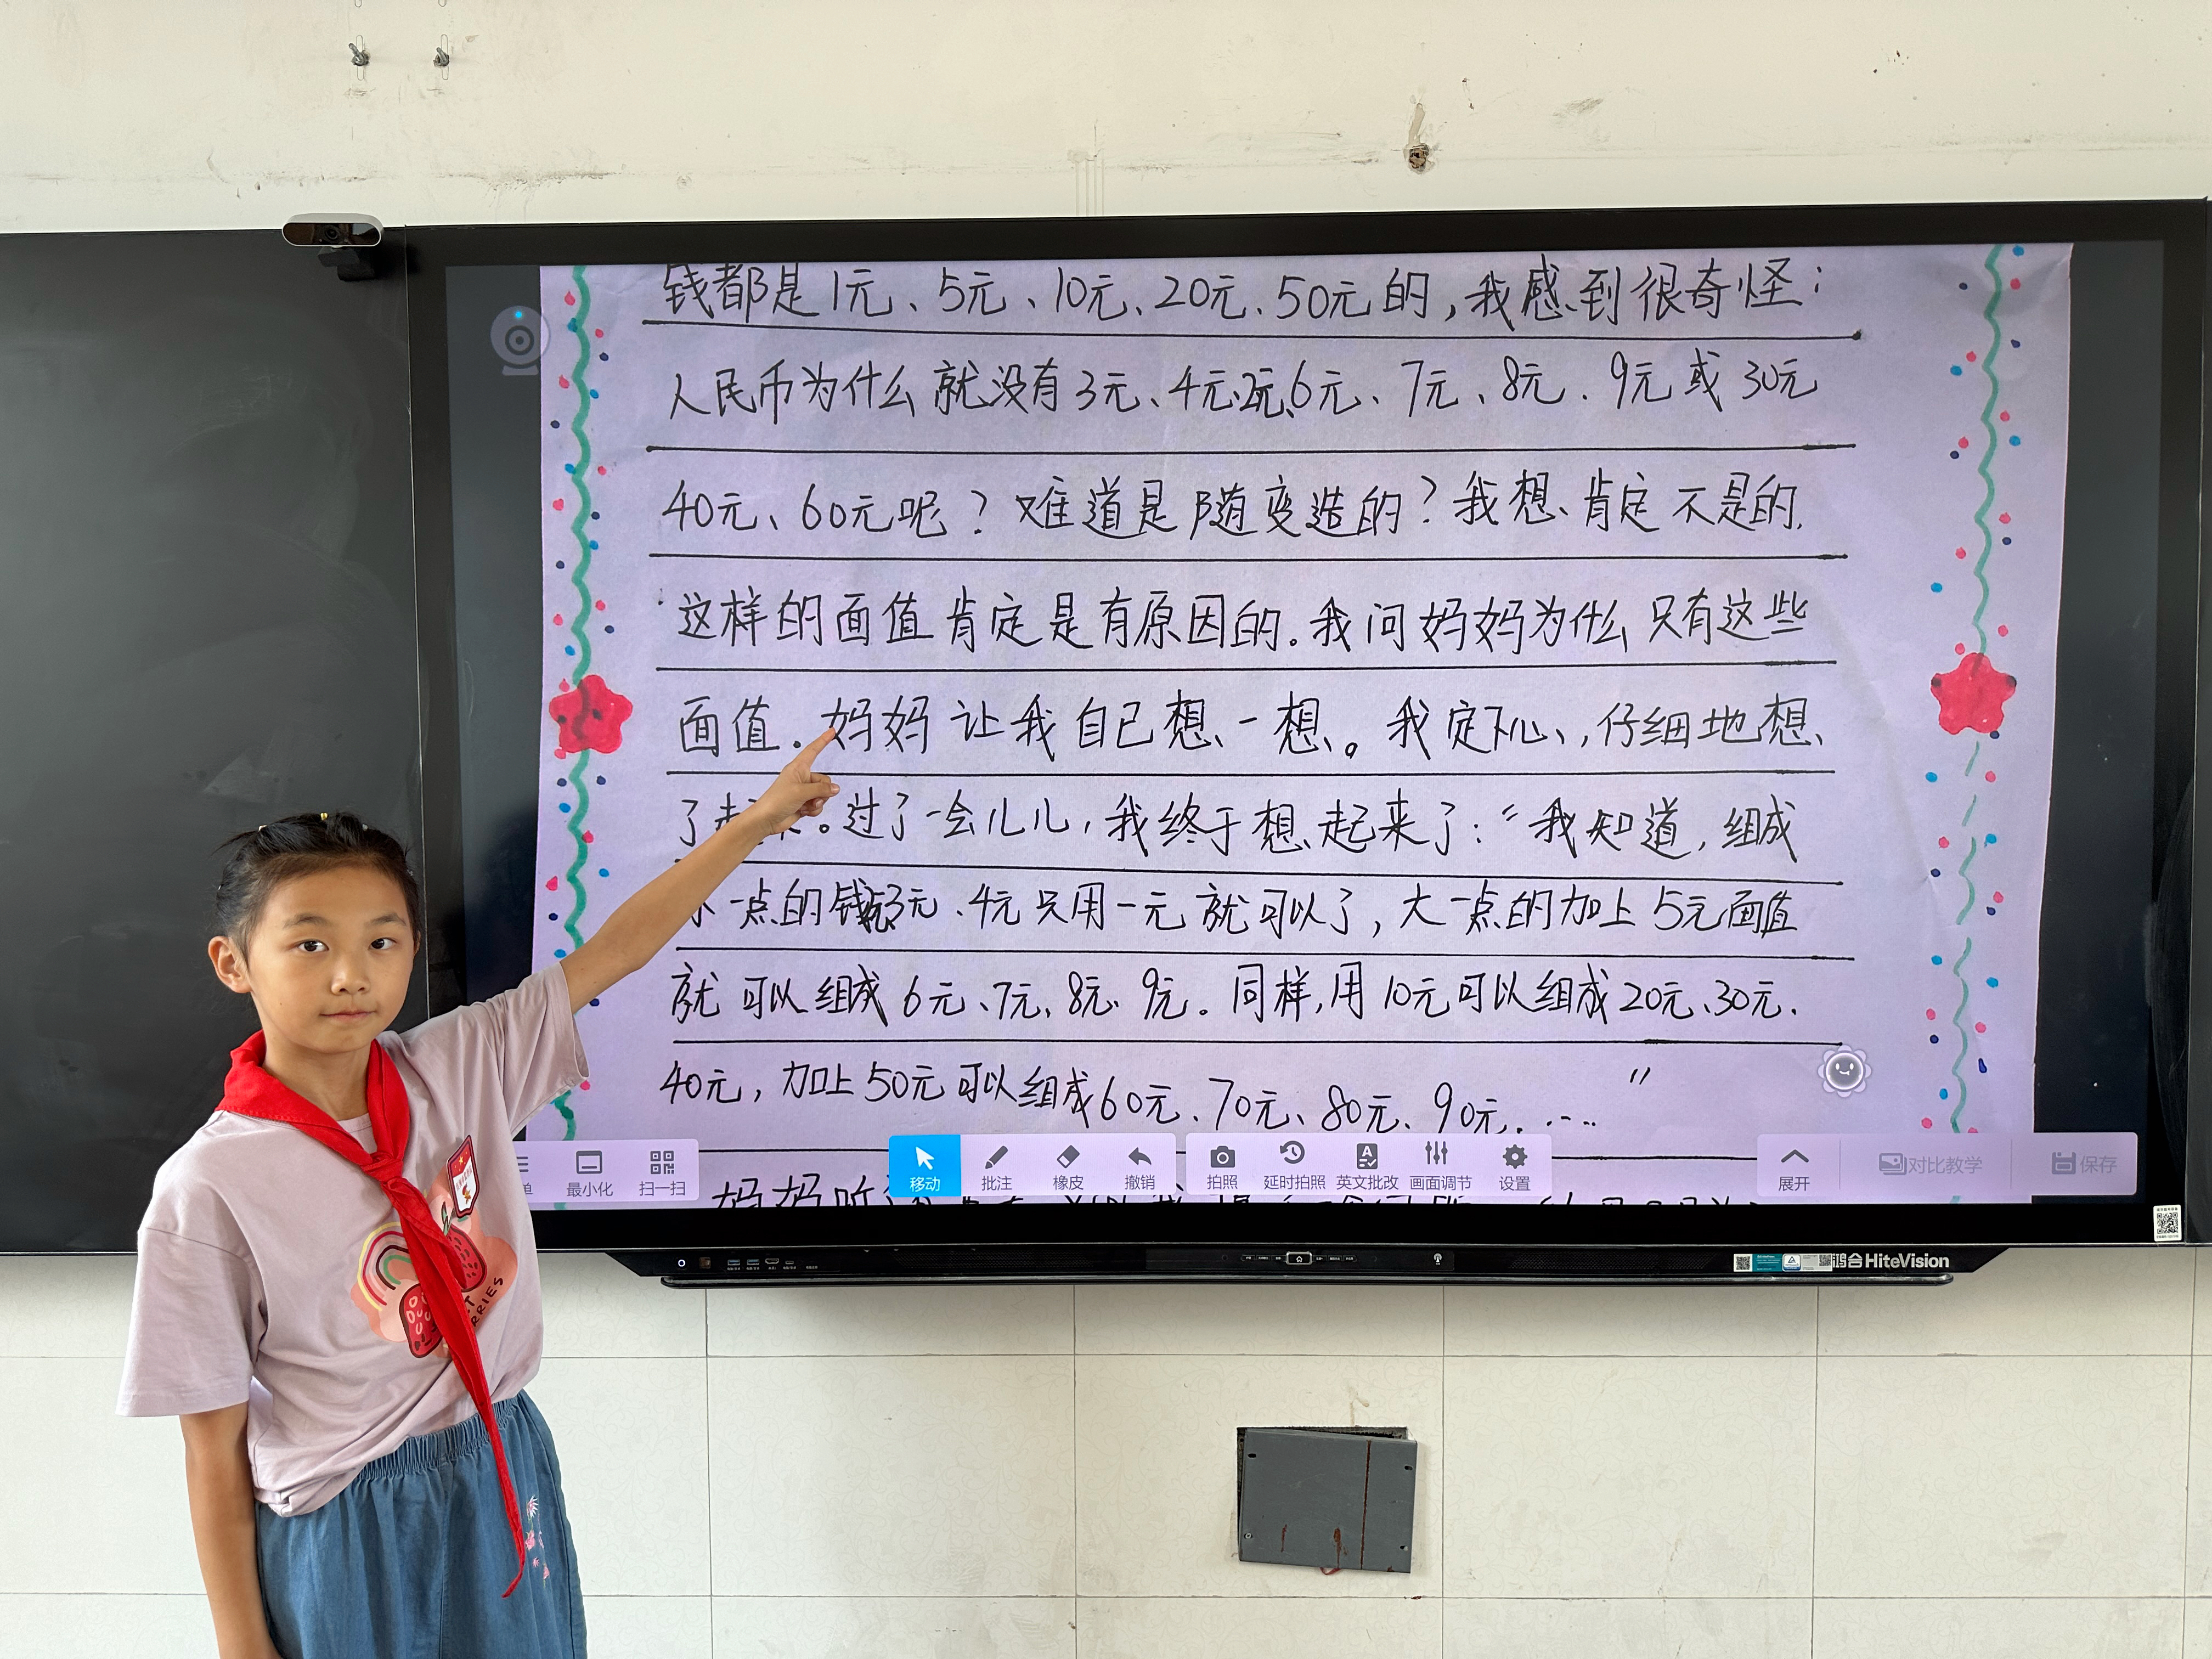 钱都是1元、5元、10元、20元、50元的,我感到很奇怪:
人民币为什么就没有3元、4元、6元、7元、8元、9元或30元
40元、60元呢?难道是随变造的?我想肯定不是的.
这样的面值肯定是有原因的。我问妈妈为什么只有这些
面值.妈妈让我自己想一想。我定下心,仔细地想
了起。过了一会儿儿,我终于想起来了:“我知道,组成
一点的钱3元、4元只用一元就可以了,大一点的加上5元面值
就可以组成6元、7元、8元、9元。同样,用10元可以组成20元、30元.
40元,加上50元可以组成60元、70元、80元、90元.……”
妈妈听
单
最小化
扫一扫
移动
批注
橡皮
撤销
拍照
延时拍照
英文批改
画面调节
设置
展开
对比教学
保存
鸿合HiteVision
RRIES